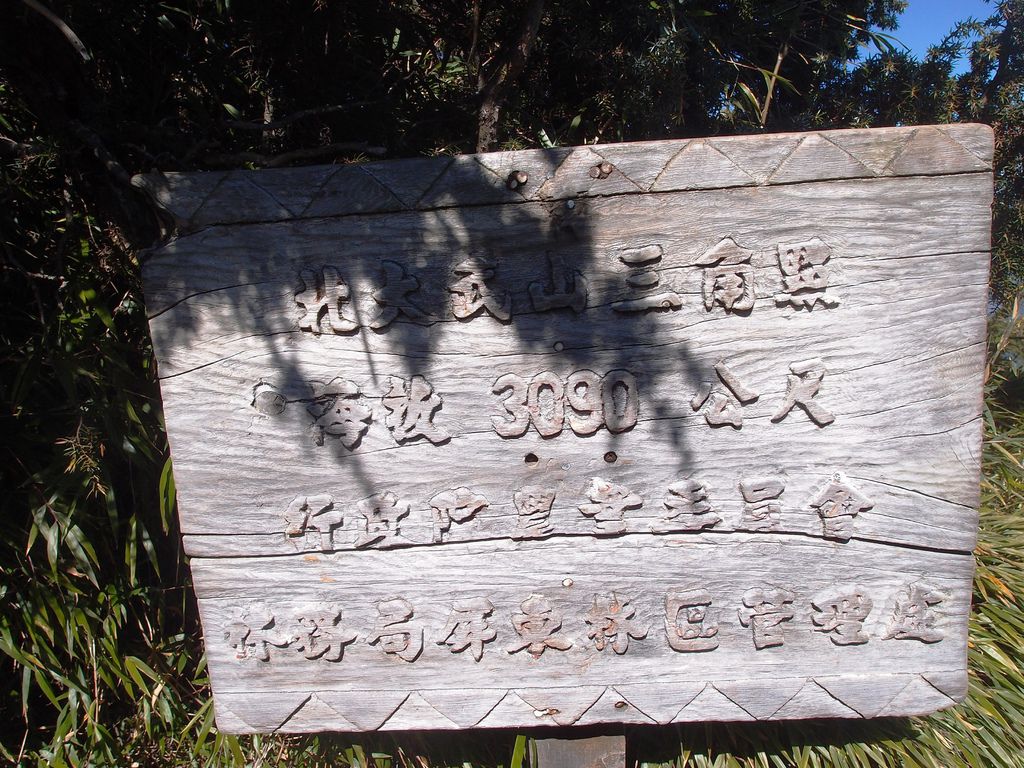 北大武山三角點
海拔 3090 公尺
行政院農業委員會
林務局屏東林區管理處